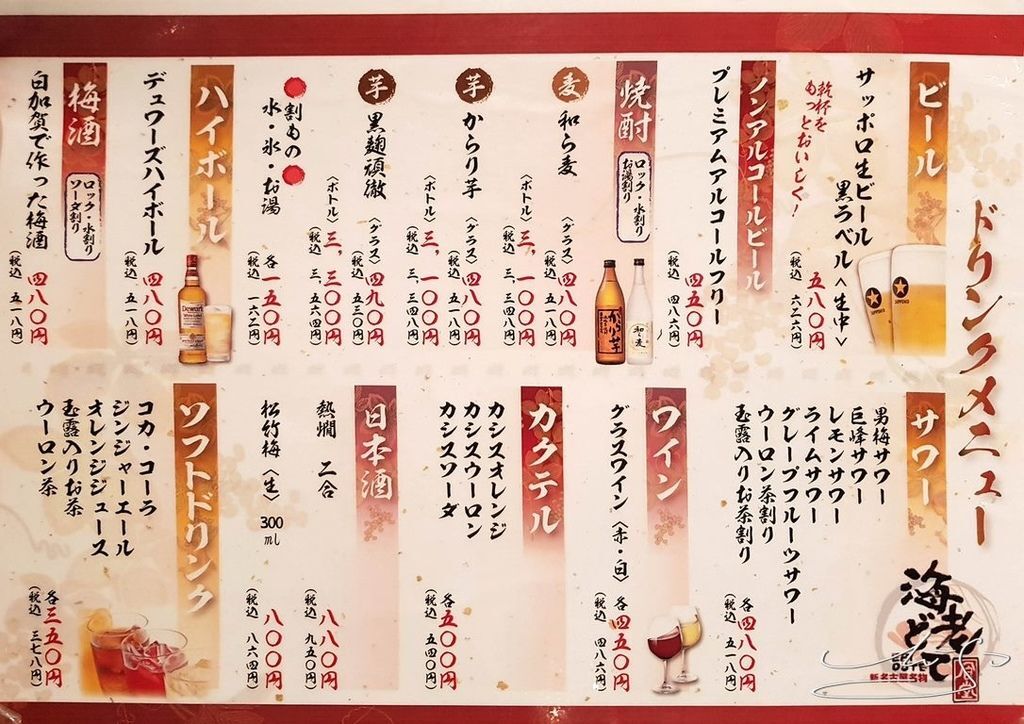 ドリンクメニュー
ビール
サッポロ生ビール
黒ラベル〈生中〉
五八〇円
(税込 六二六円)
乾杯を
もっとおいしく!
ノンアルコールビール
プレミアムアルコールフリー
四五〇円
(税込 四八六円)
焼酎
ロック・水割り
お湯割り
麦
和ら麦
〈グラス〉四八〇円
(税込 五一八円)
〈ボトル〉三、一〇〇円
(税込 三、三四八円)
芋
からり芋
〈グラス〉四八〇円
(税込 五一八円)
〈ボトル〉三、一〇〇円
(税込 三、三四八円)
芋
黒麹頑徹
〈グラス〉四九〇円
(税込 五三〇円)
〈ボトル〉三、三〇〇円
(税込 三、五六四円)
割もの
水・氷・お湯
各一五〇円
(税込 一六二円)
ハイボール
デュワーズハイボール
四八〇円
(税込 五一八円)
Dewar's
梅酒
ロック・水割り
ソーダ割り
白加賀で作った梅酒
四八〇円
(税込 五一八円)
からり芋
和ら麦
SAPPORO
サワー
男梅サワー
巨峰サワー
レモンサワー
ライムサワー
グレープフルーツサワー
ウーロン茶割り
玉露入りお茶割り
各四八〇円
(税込 五一八円)
ワイン
グラスワイン〈赤・白〉
各四五〇円
(税込 四八六円)
カクテル
カシスオレンジ
カシスウーロン
カシスソーダ
各五〇〇円
(税込 五四〇円)
日本酒
熱燗 二合
八八〇円
(税込 九五〇円)
松竹梅〈生〉300ml
八〇〇円
(税込 八六四円)
ソフトドリンク
コカ・コーラ
ジンジャーエール
オレンジジュース
玉露入りお茶
ウーロン茶
各三五〇円
(税込 三七八円)
海老どて
新名古屋名物